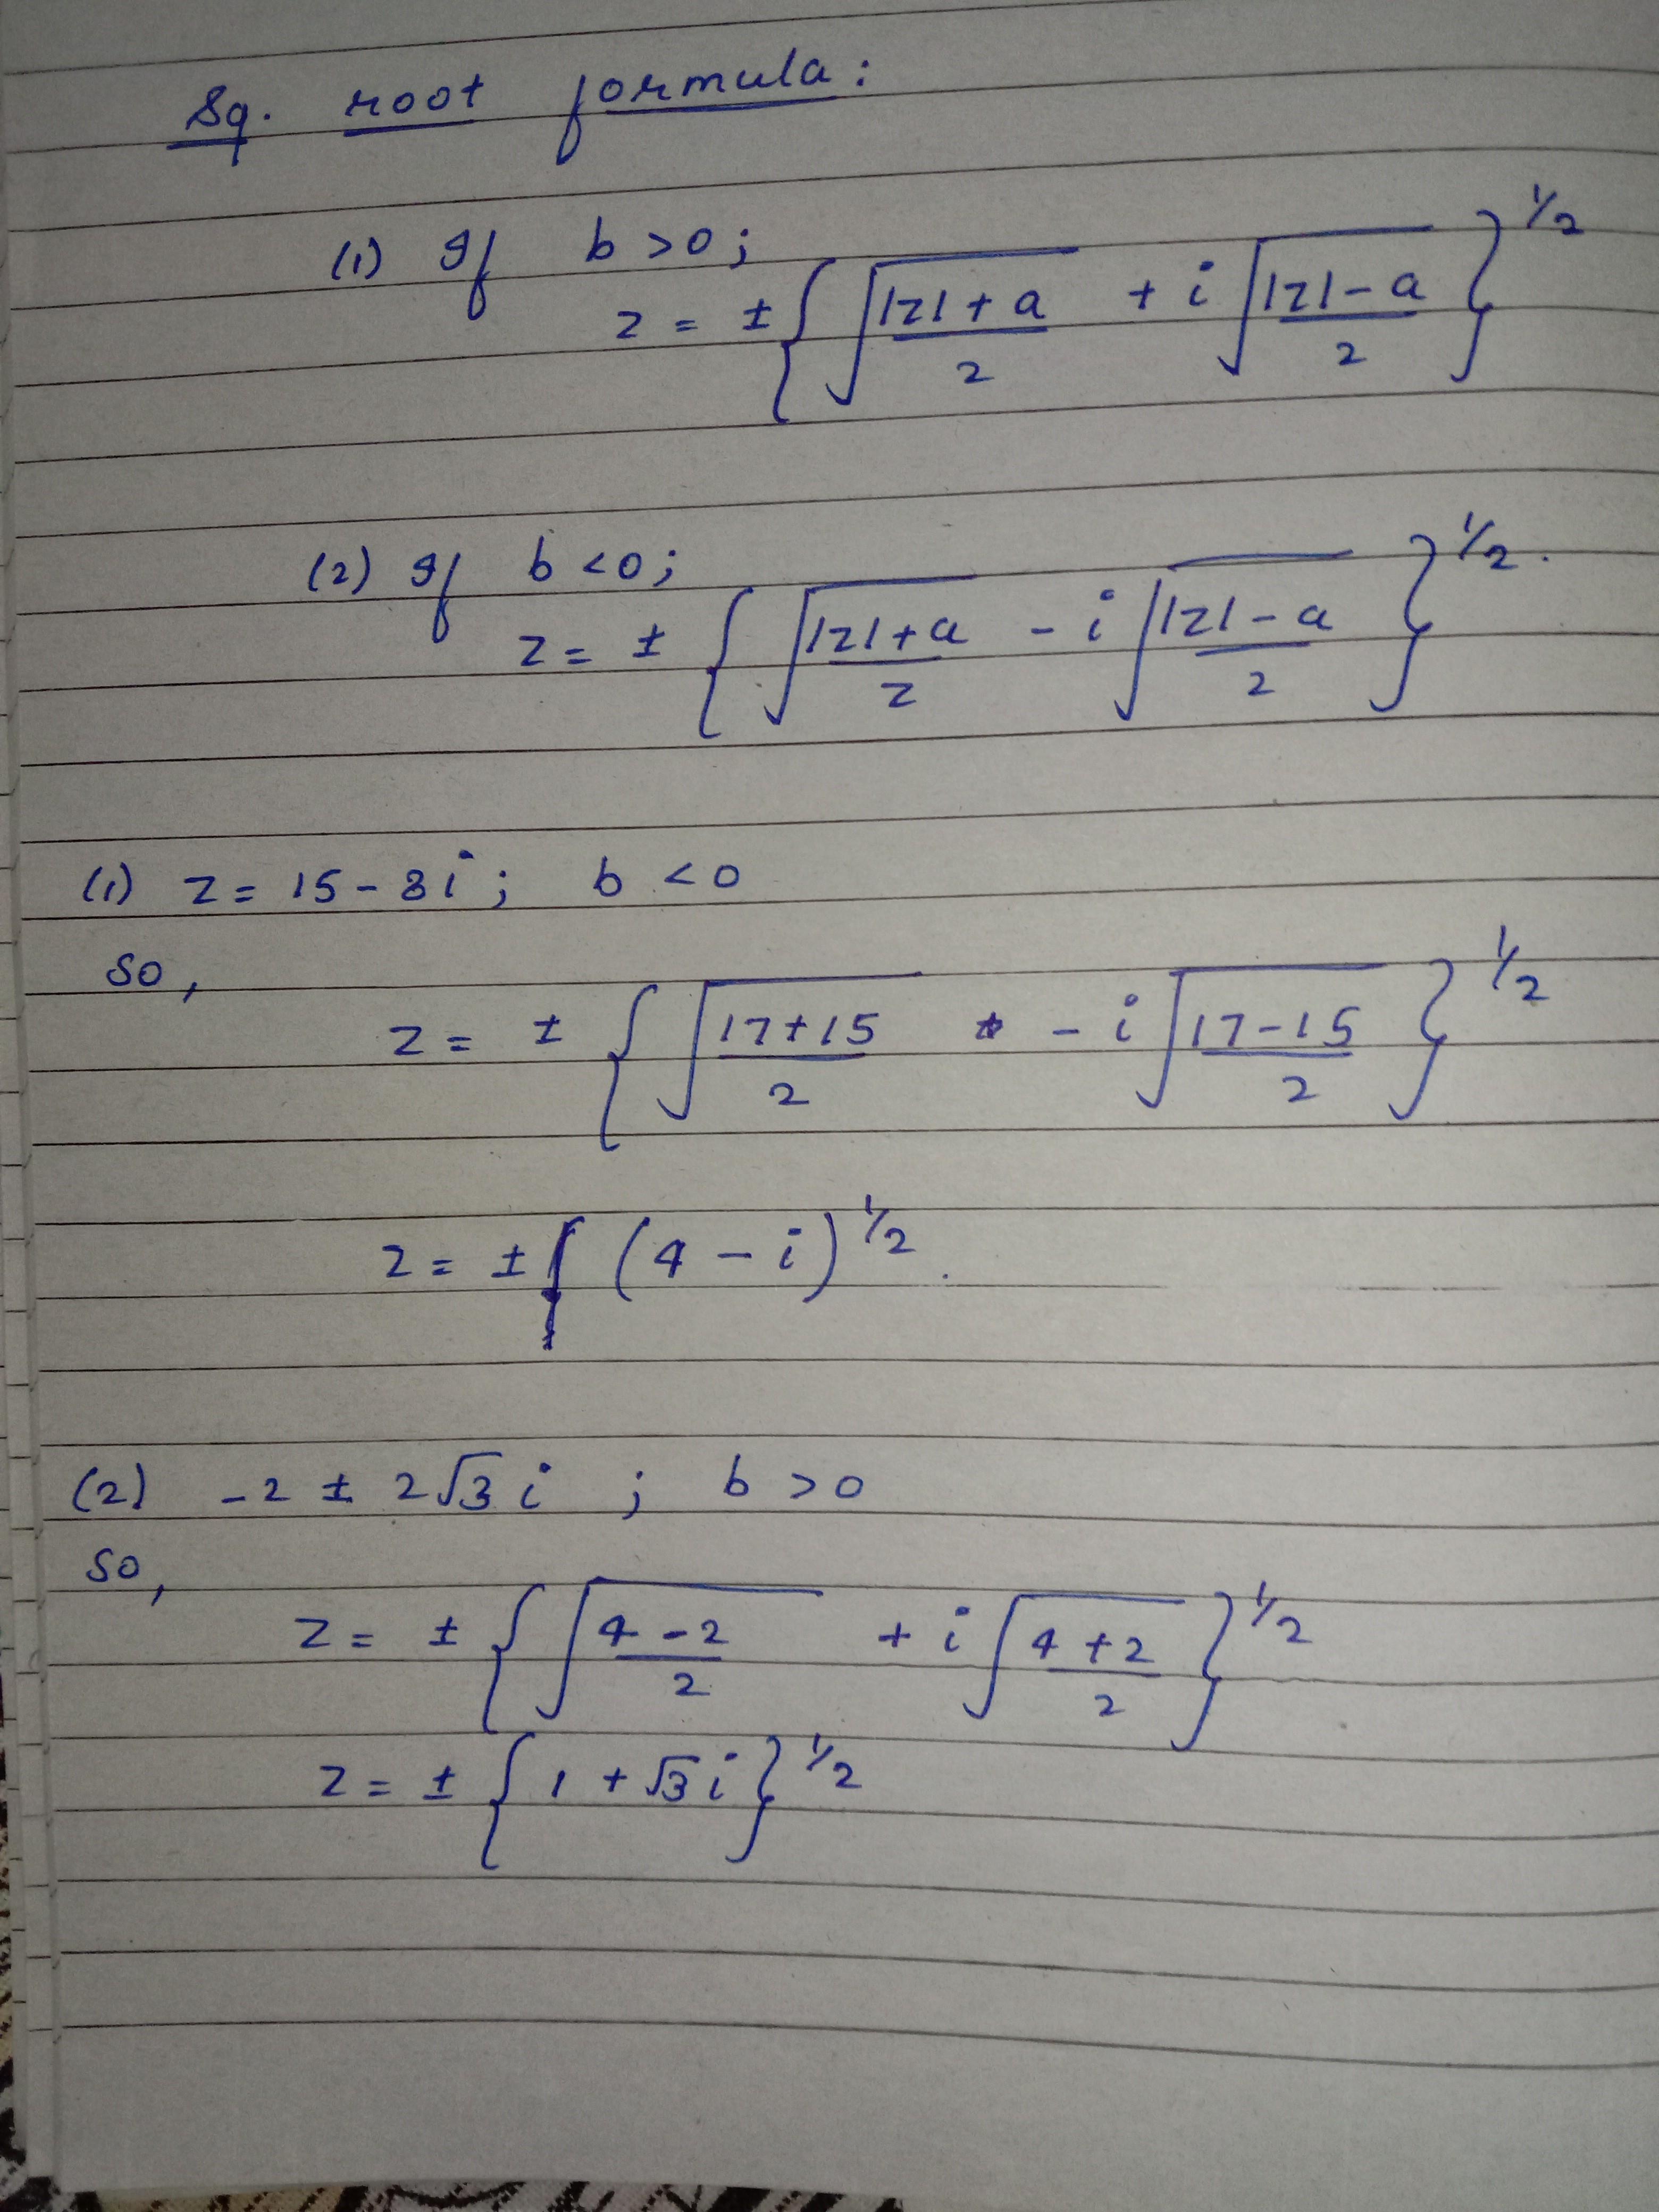 Sq. root formula:
(1) If b > 0;
z = ± { √((|z| + a)/2) + i √((|z| - a)/2) }^1/2
(2) If b < 0;
z = ± { √((|z| + a)/2) - i √((|z| - a)/2) }^1/2.
(1) z = 15 - 8i ; b < 0
so,
z = ± { √((17 + 15)/2) - i √((17 - 15)/2) }^1/2
z = ± (4 - i)^1/2.
(2) -2 ± 2√3 i ; b > 0
so,
z = ± { √((4 - 2)/2) + i √((4 + 2)/2) }^1/2
z = ± { 1 + √3 i }^1/2